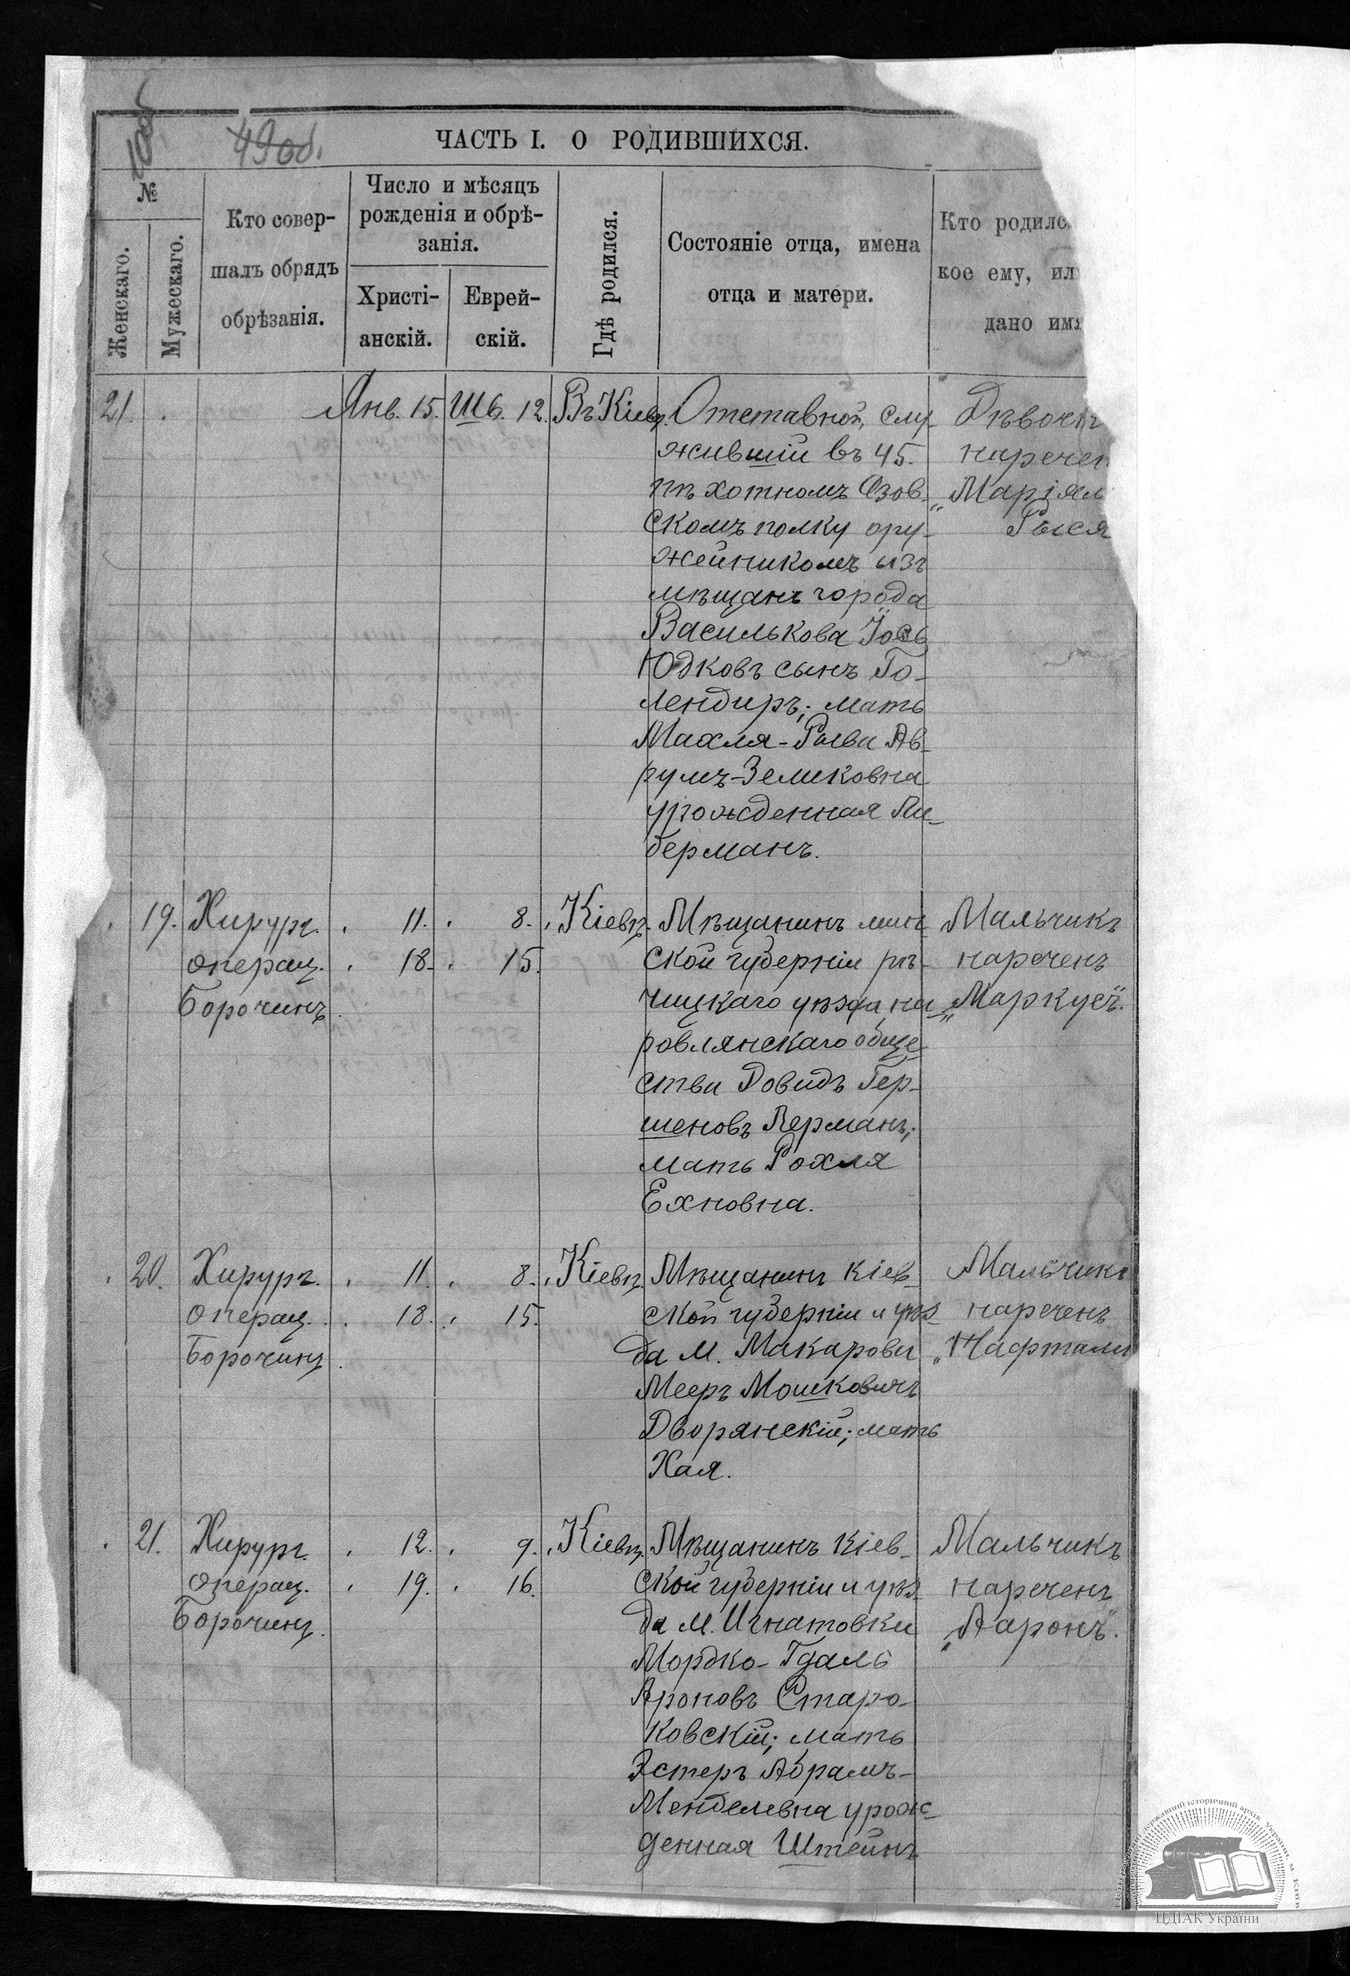 49 об.
ЧАСТЬ I. О РОДИВШИХСЯ.
№
Женскаго.
Мужескаго.
Кто совер-
шалъ обрядъ
обрѣзанія.
Число и мѣсяцъ
рожденія и обрѣ-
занія.
Христі-
анскій.
Еврей-
скій.
Гдѣ родился.
Состояніе отца, имена
отца и матери.
Кто родилс
кое ему, ил
дано имя
21. Янв. 15. Шв. 12. Въ Кіевѣ. Отставной, слу-
живший въ 45.
пѣхотномъ Азов-
скомъ полку ору-
жейникомъ изъ
мѣщанъ города
Василькова Іось
Юдковъ сынъ Го-
лендиръ; мать
Махля-Рыва Ав-
румъ-Зеликовна
урожденная Ли-
берманъ.
Дѣвочк
наречен
„Маріям
Рыся
19. Хирург.
операц.
Борочинъ.
11. 8.
18. 15.
Кіевѣ. Мѣщанинъ мин-
ской губерніи рѣ-
чицкаго уѣзда, на-
ровлянскаго обще-
ства Довидъ Гер-
шеновъ Лерманъ;
мать Рохля
Ехновна.
Мальчикъ
нареченъ
„Маркусъ".
20. Хирург.
операц.
Борочинъ.
11. 8.
18. 15.
Кіевѣ. Мѣщанинъ кіев-
ской губерніи и уѣз-
да м. Макарова
Мееръ Мошковичъ
Дворянскій; мать
Хая.
Мальчикъ
нареченъ
„Нафтали
21. Хирург.
операц.
Борочинъ.
12. 9.
19. 16.
Кіевѣ. Мѣщанинъ кіев-
ской губерніи и уѣз-
да м. Игнатовки
Мордко-Гдаль
Ароновъ Старо-
ковскій; мать
Эстеръ Абрамъ-
Менделевна урож-
денная Штейнъ
Мальчикъ
нареченъ
„Ааронъ".
ЦДІАК України